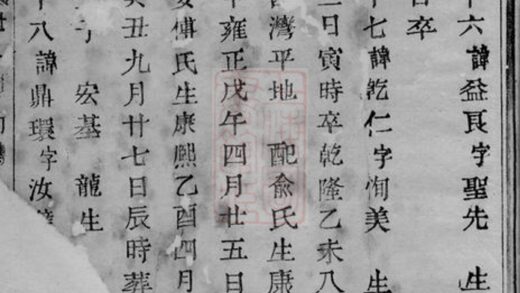 十六諱益艮字聖先 生
日卒
十七諱乾仁字洵美 生
二日寅時卒乾隆乙未八
灣平地 配俞氏生康
年雍正戊午四月廿五日
傅氏生康熙乙酉四月
癸丑九月廿七日辰時葬
子 宏基 龍生
十八諱鼎環字汝